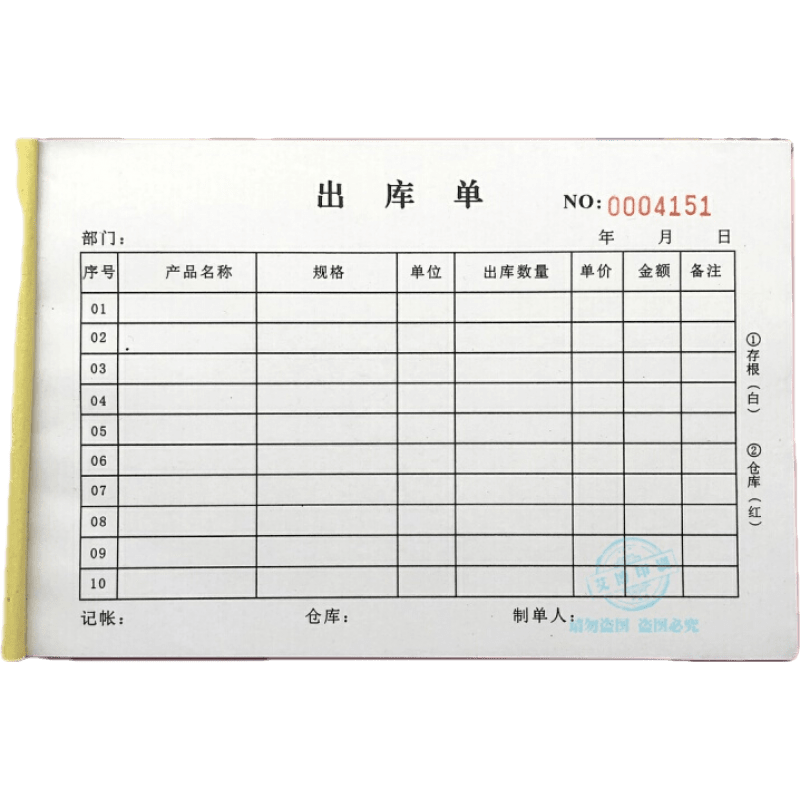 出库单
NO: 0004151
部门: 年 月 日
序号 产品名称 规格 单位 出库数量 单价 金额 备注
01
02
03
04
05
06
07
08
09
10
记帐: 仓库: 制单人:
①存根(白)
②仓库(红)
请勿盗图 盗图必究